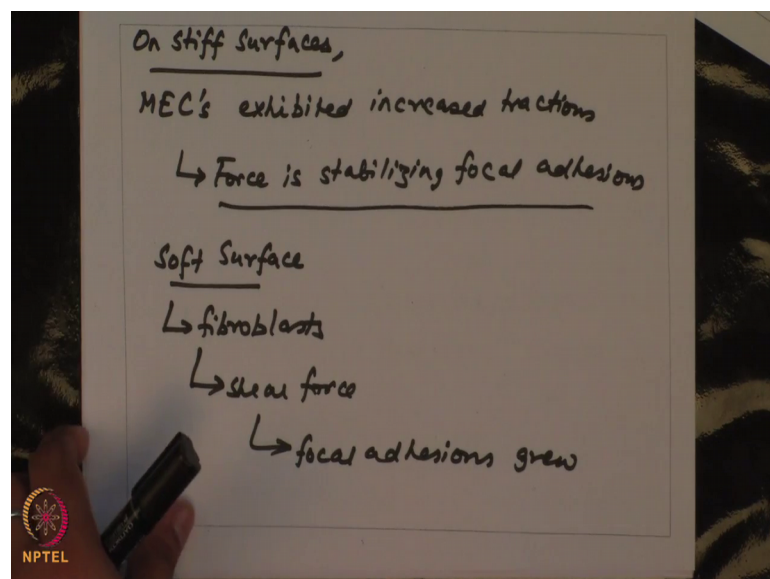 On stiff surfaces,
MEC's exhibited increased tractions
↳ Force is stabilizing focal adhesions
Soft Surface
↳ fibroblasts
↳ shear force
↳ focal adhesions grew
NPTEL